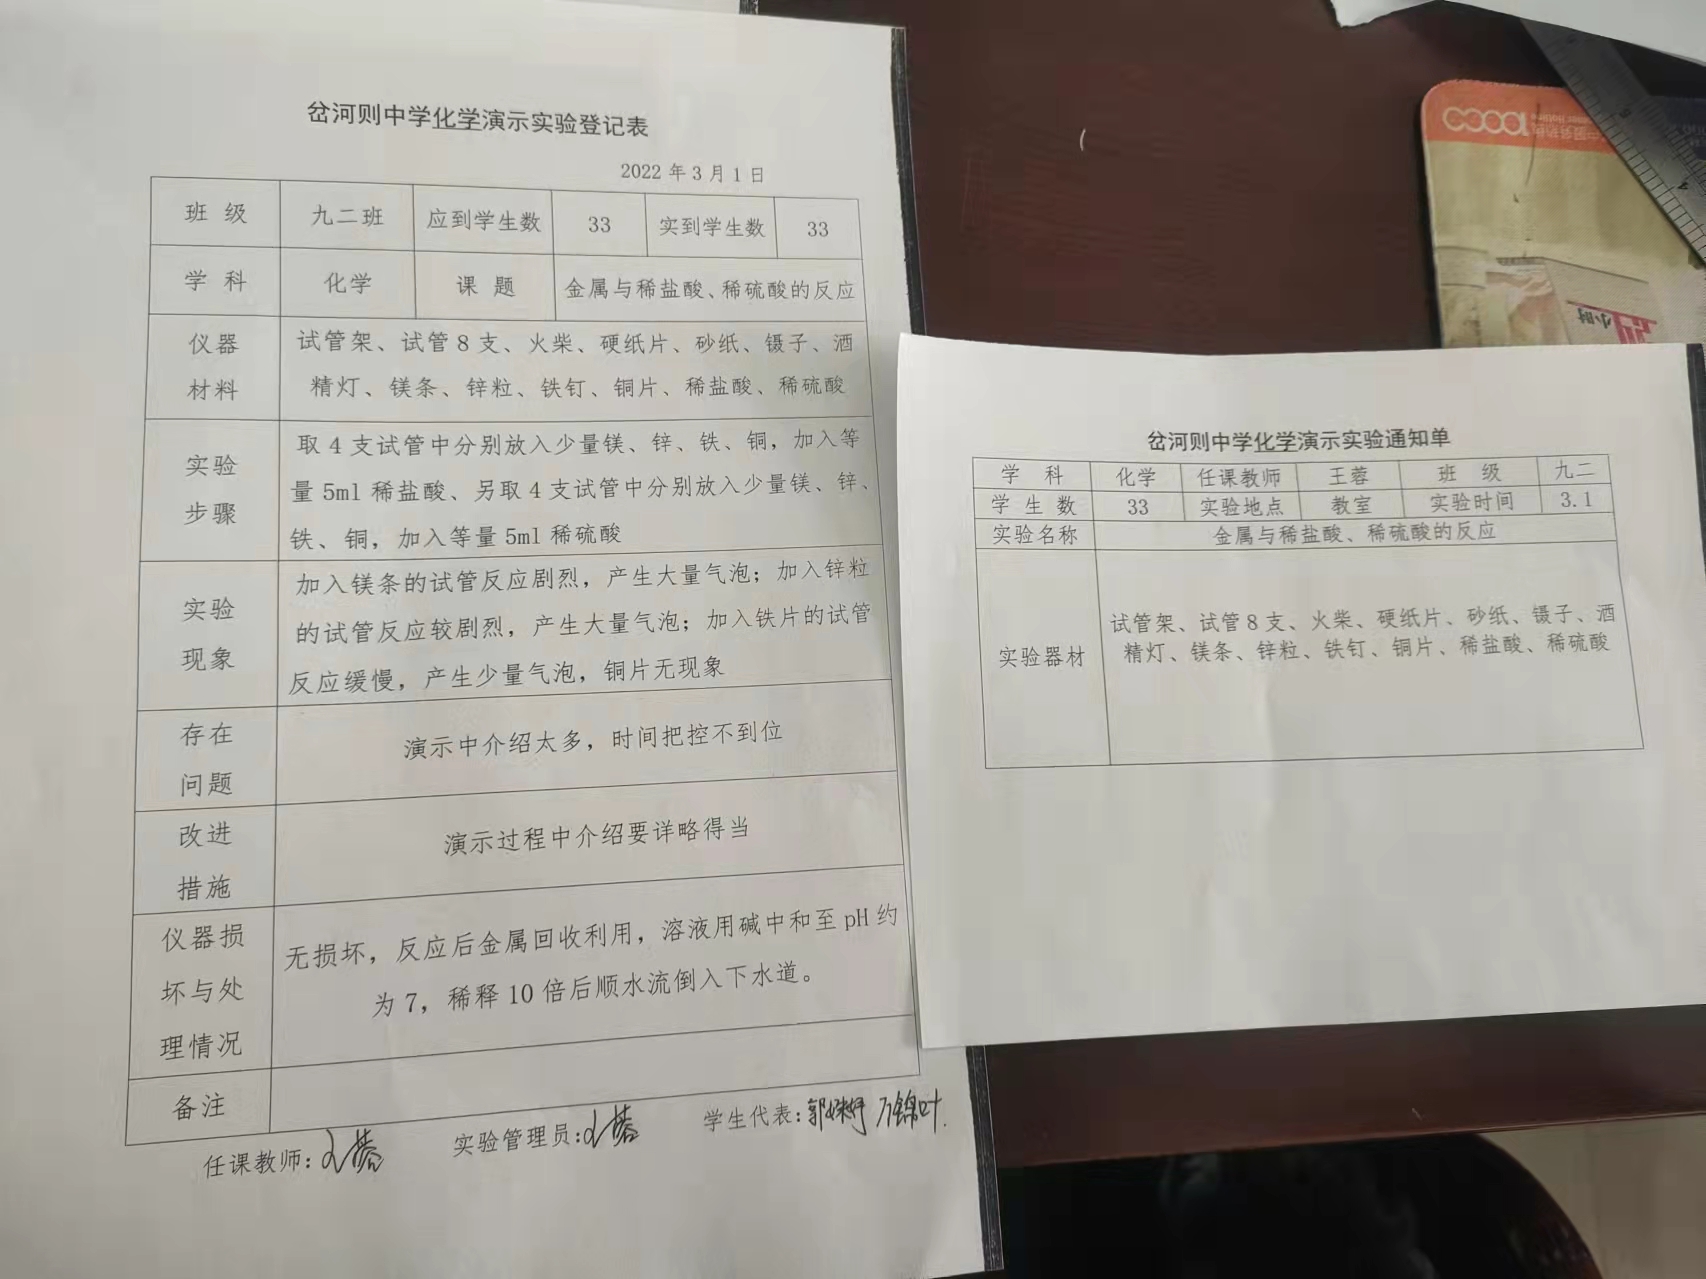 岔河则中学化学演示实验登记表
2022 年 3 月 1 日
班 级 九二班 应到学生数 33 实到学生数 33
学 科 化学 课 题 金属与稀盐酸、稀硫酸的反应
仪器
材料
试管架、试管 8 支、火柴、硬纸片、砂纸、镊子、酒
精灯、镁条、锌粒、铁钉、铜片、稀盐酸、稀硫酸
实验
步骤
取 4 支试管中分别放入少量镁、锌、铁、铜，加入等
量 5ml 稀盐酸、另取 4 支试管中分别放入少量镁、锌、
铁、铜，加入等量 5ml 稀硫酸
实验
现象
加入镁条的试管反应剧烈，产生大量气泡；加入锌粒
的试管反应较剧烈，产生大量气泡；加入铁片的试管
反应缓慢，产生少量气泡，铜片无现象
存在
问题
演示中介绍太多，时间把控不到位
改进
措施
演示过程中介绍要详略得当
仪器损
坏与处
理情况
无损坏，反应后金属回收利用，溶液用碱中和至 pH 约
为 7，稀释 10 倍后顺水流倒入下水道。
备注
任课教师：王蓉 实验管理员：王蓉 学生代表：
岔河则中学化学演示实验通知单
学 科 化学 任课教师 王蓉 班 级 九二
学 生 数 33 实验地点 教室 实验时间 3.1
实验名称 金属与稀盐酸、稀硫酸的反应
实验器材
试管架、试管 8 支、火柴、硬纸片、砂纸、镊子、酒
精灯、镁条、锌粒、铁钉、铜片、稀盐酸、稀硫酸
小时